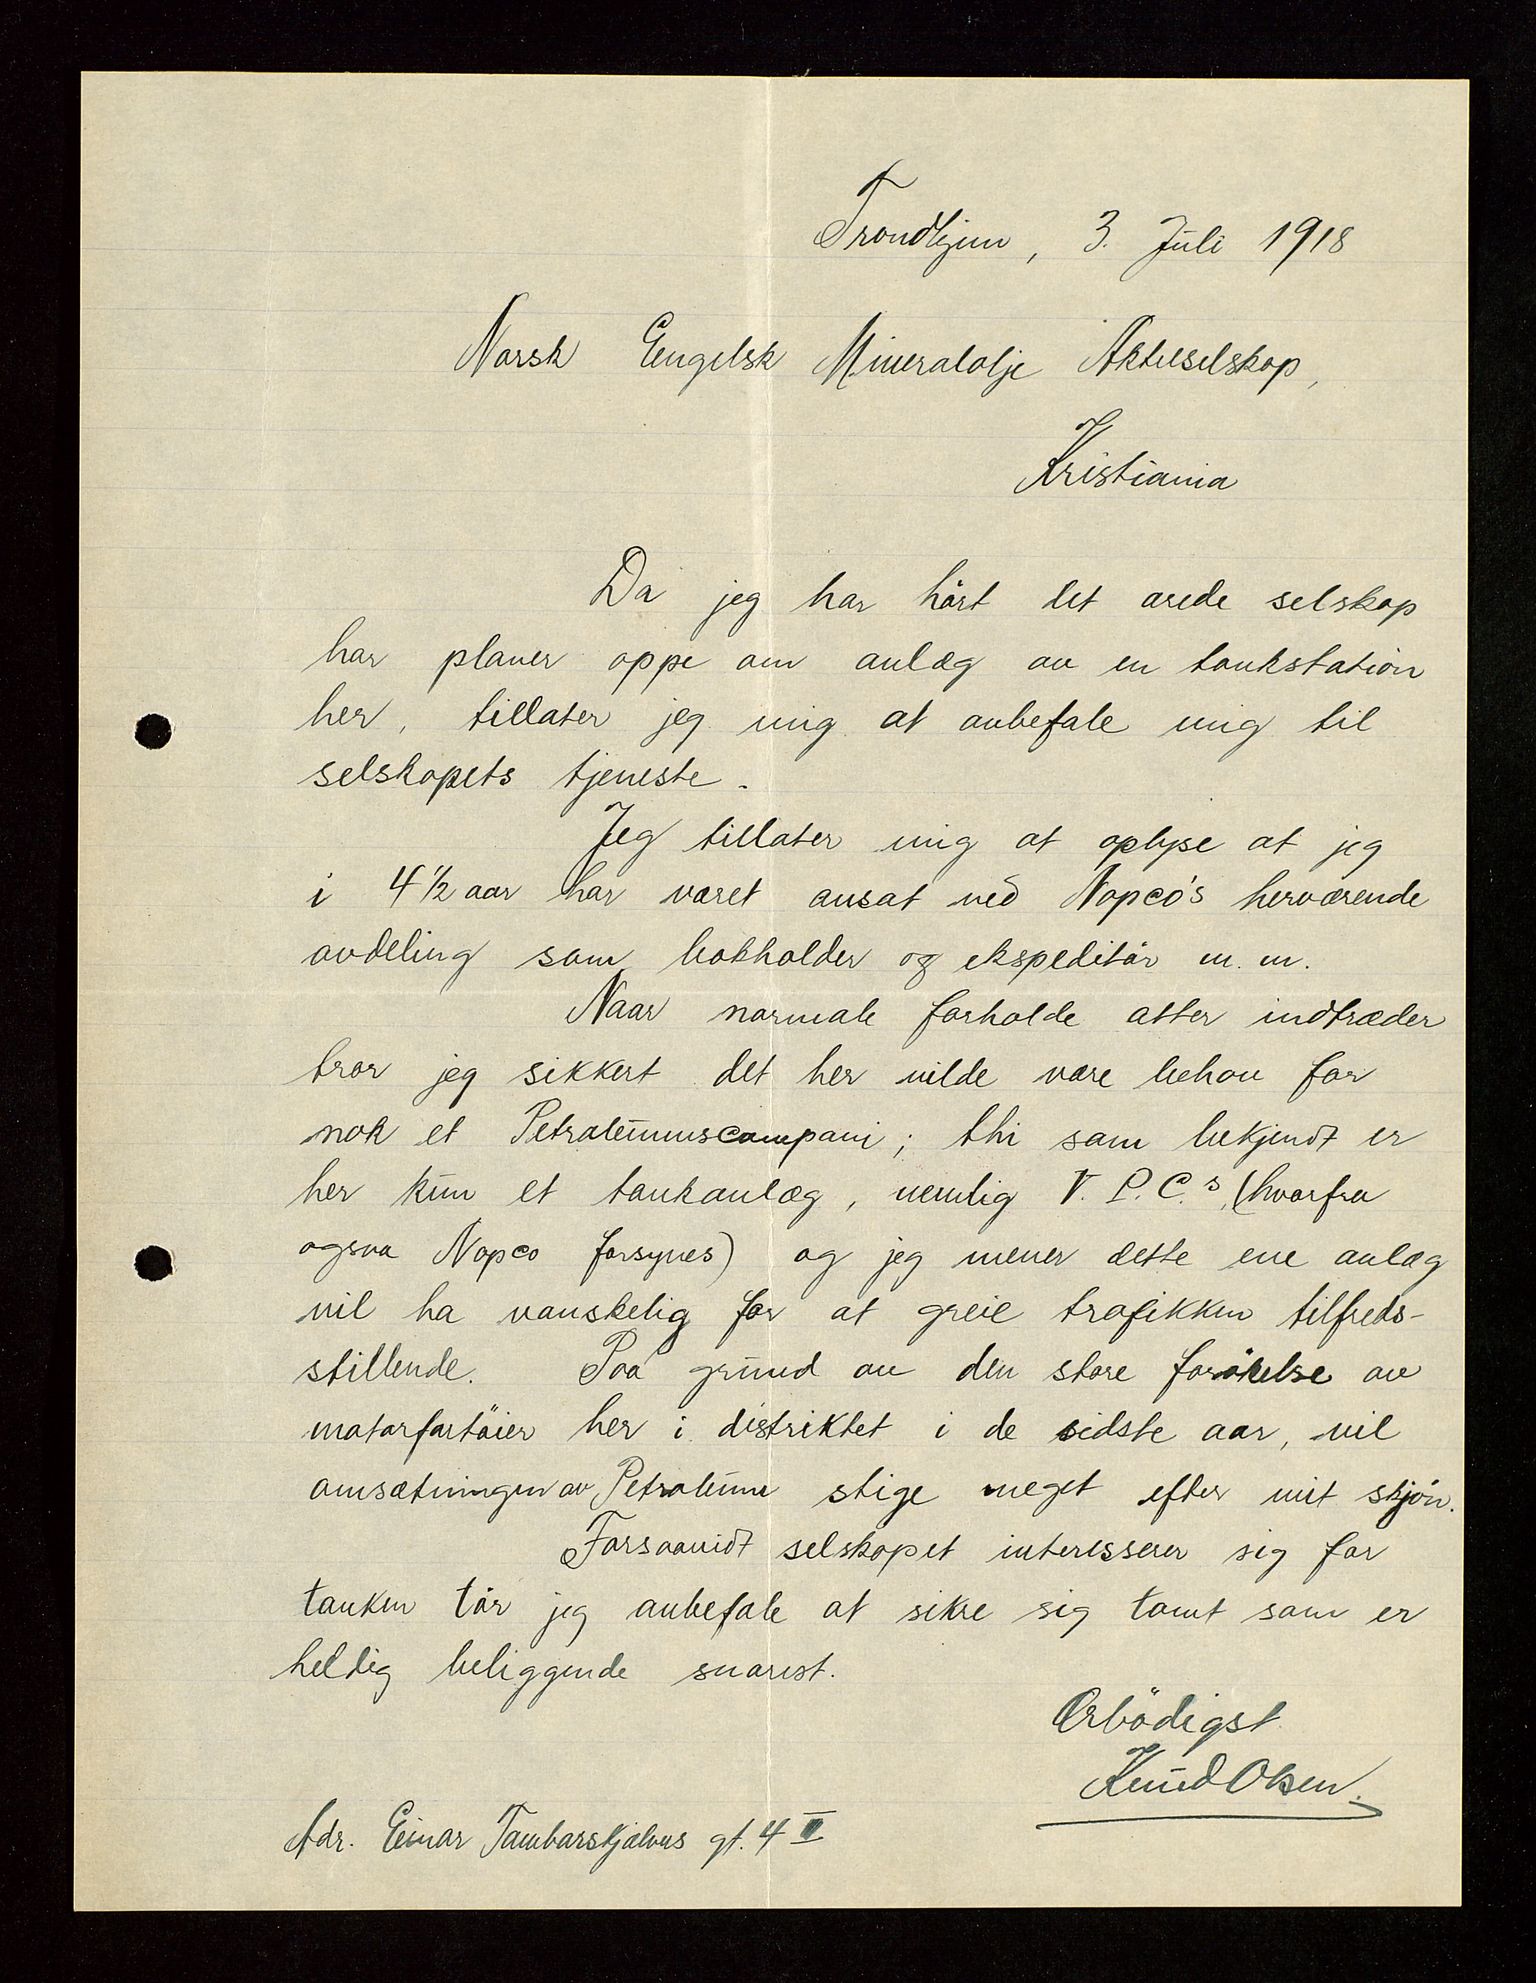 Trondhjem, 3. Juli 1918
Norsk Engelsk Mineralolje Aktieselskap,
Kristiania
Da jeg har hört det ærede selskap
har planer oppe om anlæg av en tankstation
her, tillater jeg mig at anbefale mig til
selskapets tjeneste.
Jeg tillater mig at oplyse at jeg
i 4 1/2 aar har været ansat ved Nopco's herværende
avdeling som bokholder og ekspeditör m. m.
Naar normale forholde atter indtræder
tror jeg sikkert det her vilde være behov for
nok et Petroleumscompani; thi som bekjendt er
her kun et tankanlæg, nemlig V. P. C.s, (hvorfra
ogsaa Nopco forsynes) og jeg mener dette ene anlæg
vil ha vanskelig for at greie trafikken tilfreds-
stillende. Paa grund av den store forökelse av
motorfartöier her i distriktet i de sidste aar, vil
omsætningen av Petroleum stige meget efter mit skjön.
Forsaavidt selskapet interesserer sig for
tanken tör jeg anbefale at sikre sig tomt som er
heldig beliggende snarest.
Ærbödigst
Knud Olsen.
Adr. Einar Tambarskjælves gt. 4 III